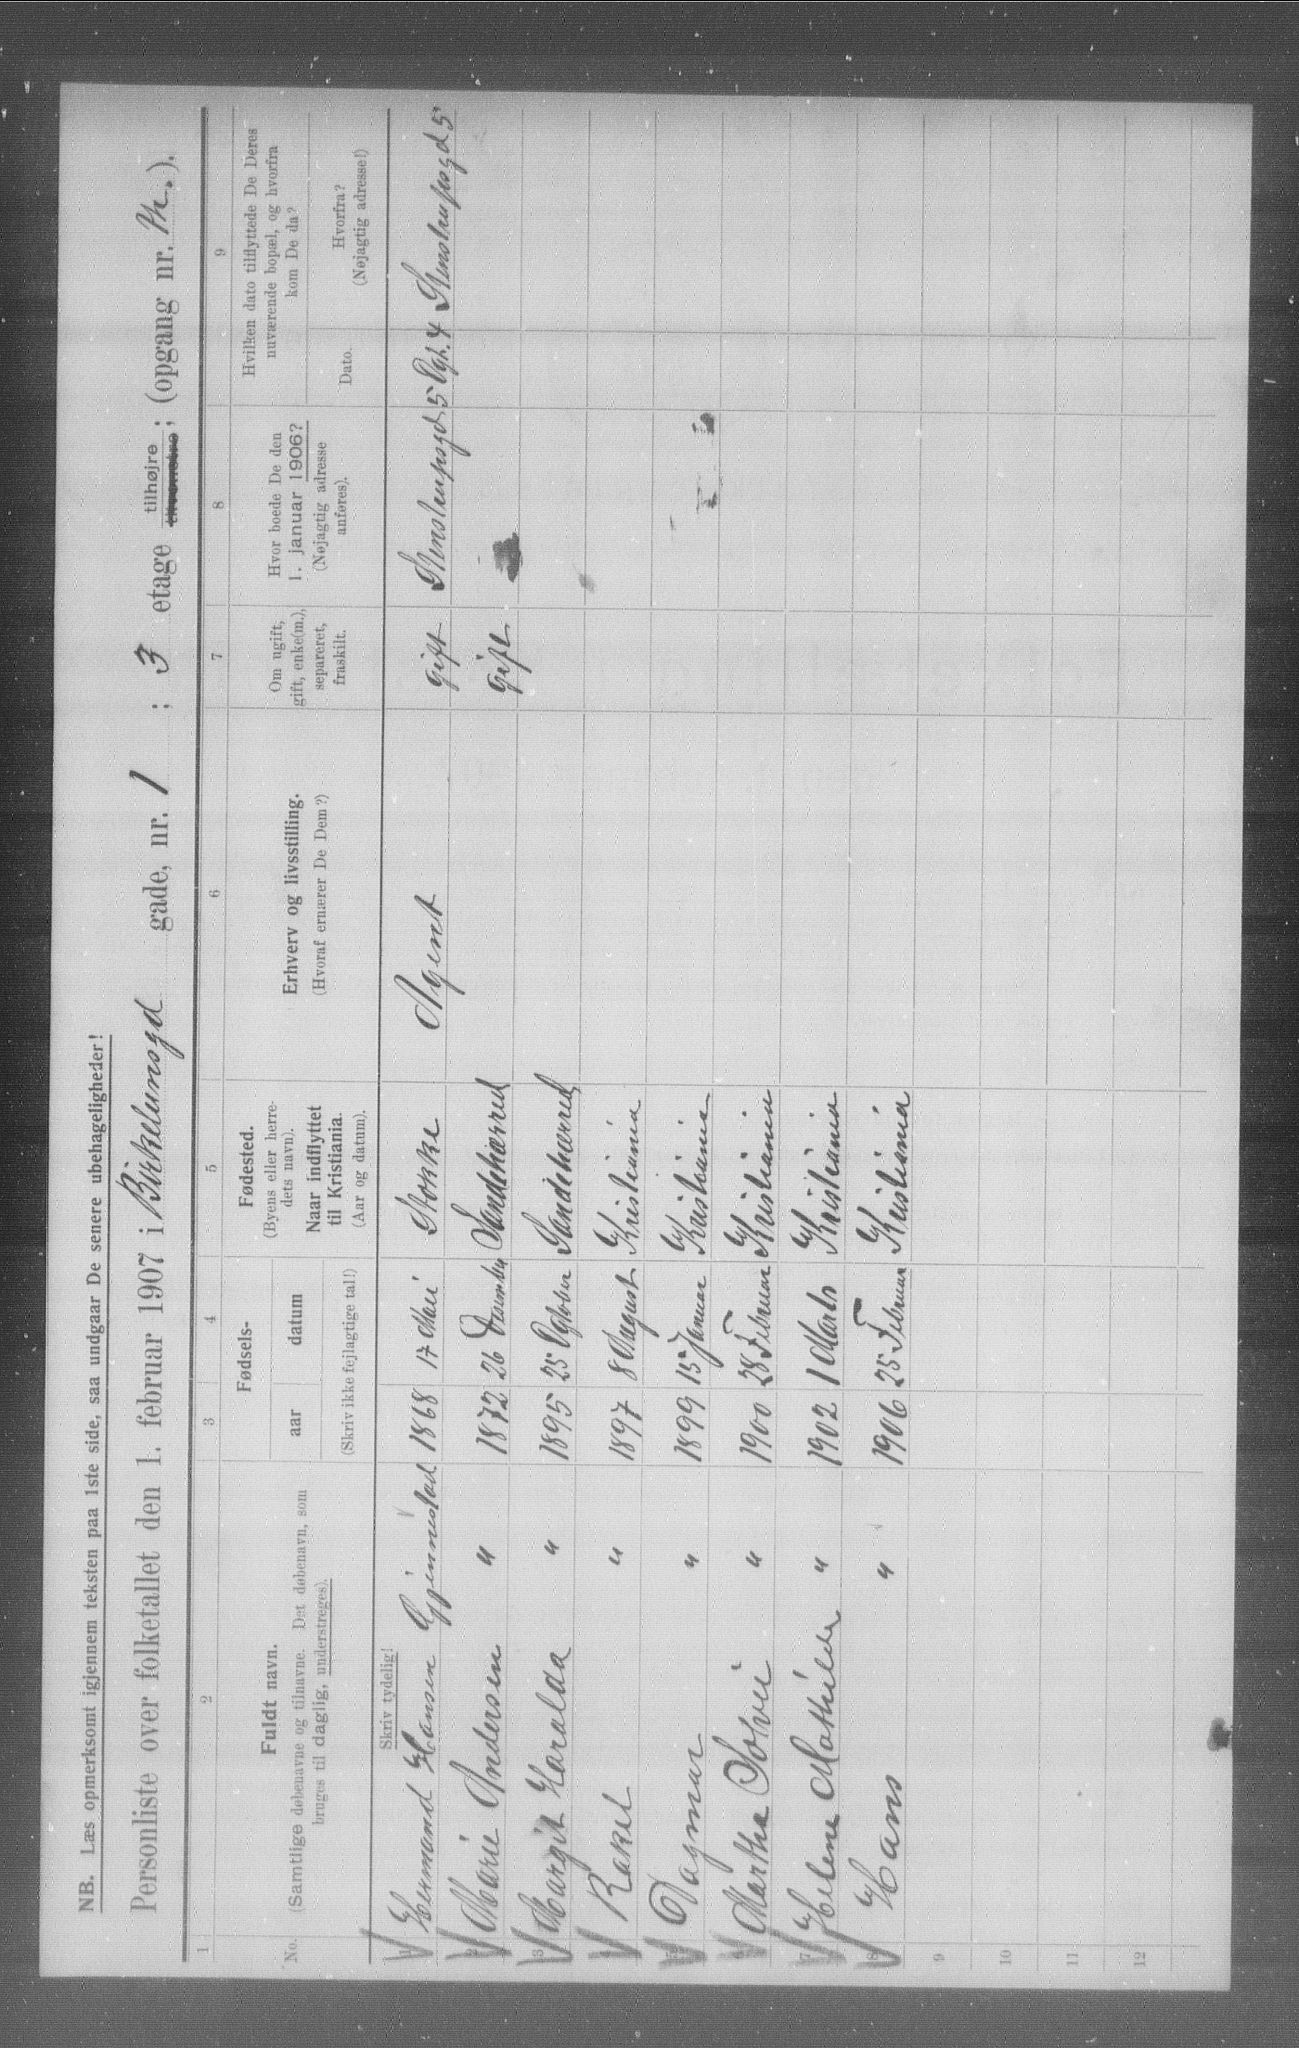 NB. Læs opmerksomt igjennem teksten paa 1ste side, saa undgaar De senere ubehageligheder!
Personliste over folketallet den 1. februar 1907 i Birkelunsgd gade, nr. 1 ; 3 etage tilhøjre ; (opgang nr. ).
1 2 3 4 5 6 7 8 9
No.
Fuldt navn.
(Samtlige døbenavne og tilnavne. Det døbenavn, som
bruges til daglig, understreges).
Fødsels-
aar datum
(Skriv ikke fejlagtige tal!)
Fødested.
(Byens eller herre-
dets navn).
Naar indflyttet
til Kristiania.
(Aar og datum).
Erhverv og livsstilling.
(Hvoraf ernærer De Dem?)
Om ugift,
gift, enke(m.),
separeret,
fraskilt.
Hvor boede De den
1. januar 1906?
(Nøjagtig adresse
anføres).
Hvilken dato tilflyttede De Deres
nuværende bopæl, og hvorfra
kom De da?
Dato.
Hvorfra?
(Nøjagtig adresse!)
Skriv tydelig!
1 Hermand Hansen Gjennestad 1868 17 Mai Stokke Agent gift Stenstrupsgd 5 Stenstrupsgd 5
2 Marie Andersen " 1872 26 Desember Sandehærred gift
3 Margit Haralda " 1895 25 Oktober Sandehærred
4 Rakel " 1897 8 August Kristiania
5 Dagmar " 1899 15 Januar Kristiania
6 Martha Solvei " 1900 28 Februar Kristiania
7 Helene Mathilde " 1902 1 Marts Kristiania
8 Hans " 1906 25 Februar Kristiania
9
10
11
12